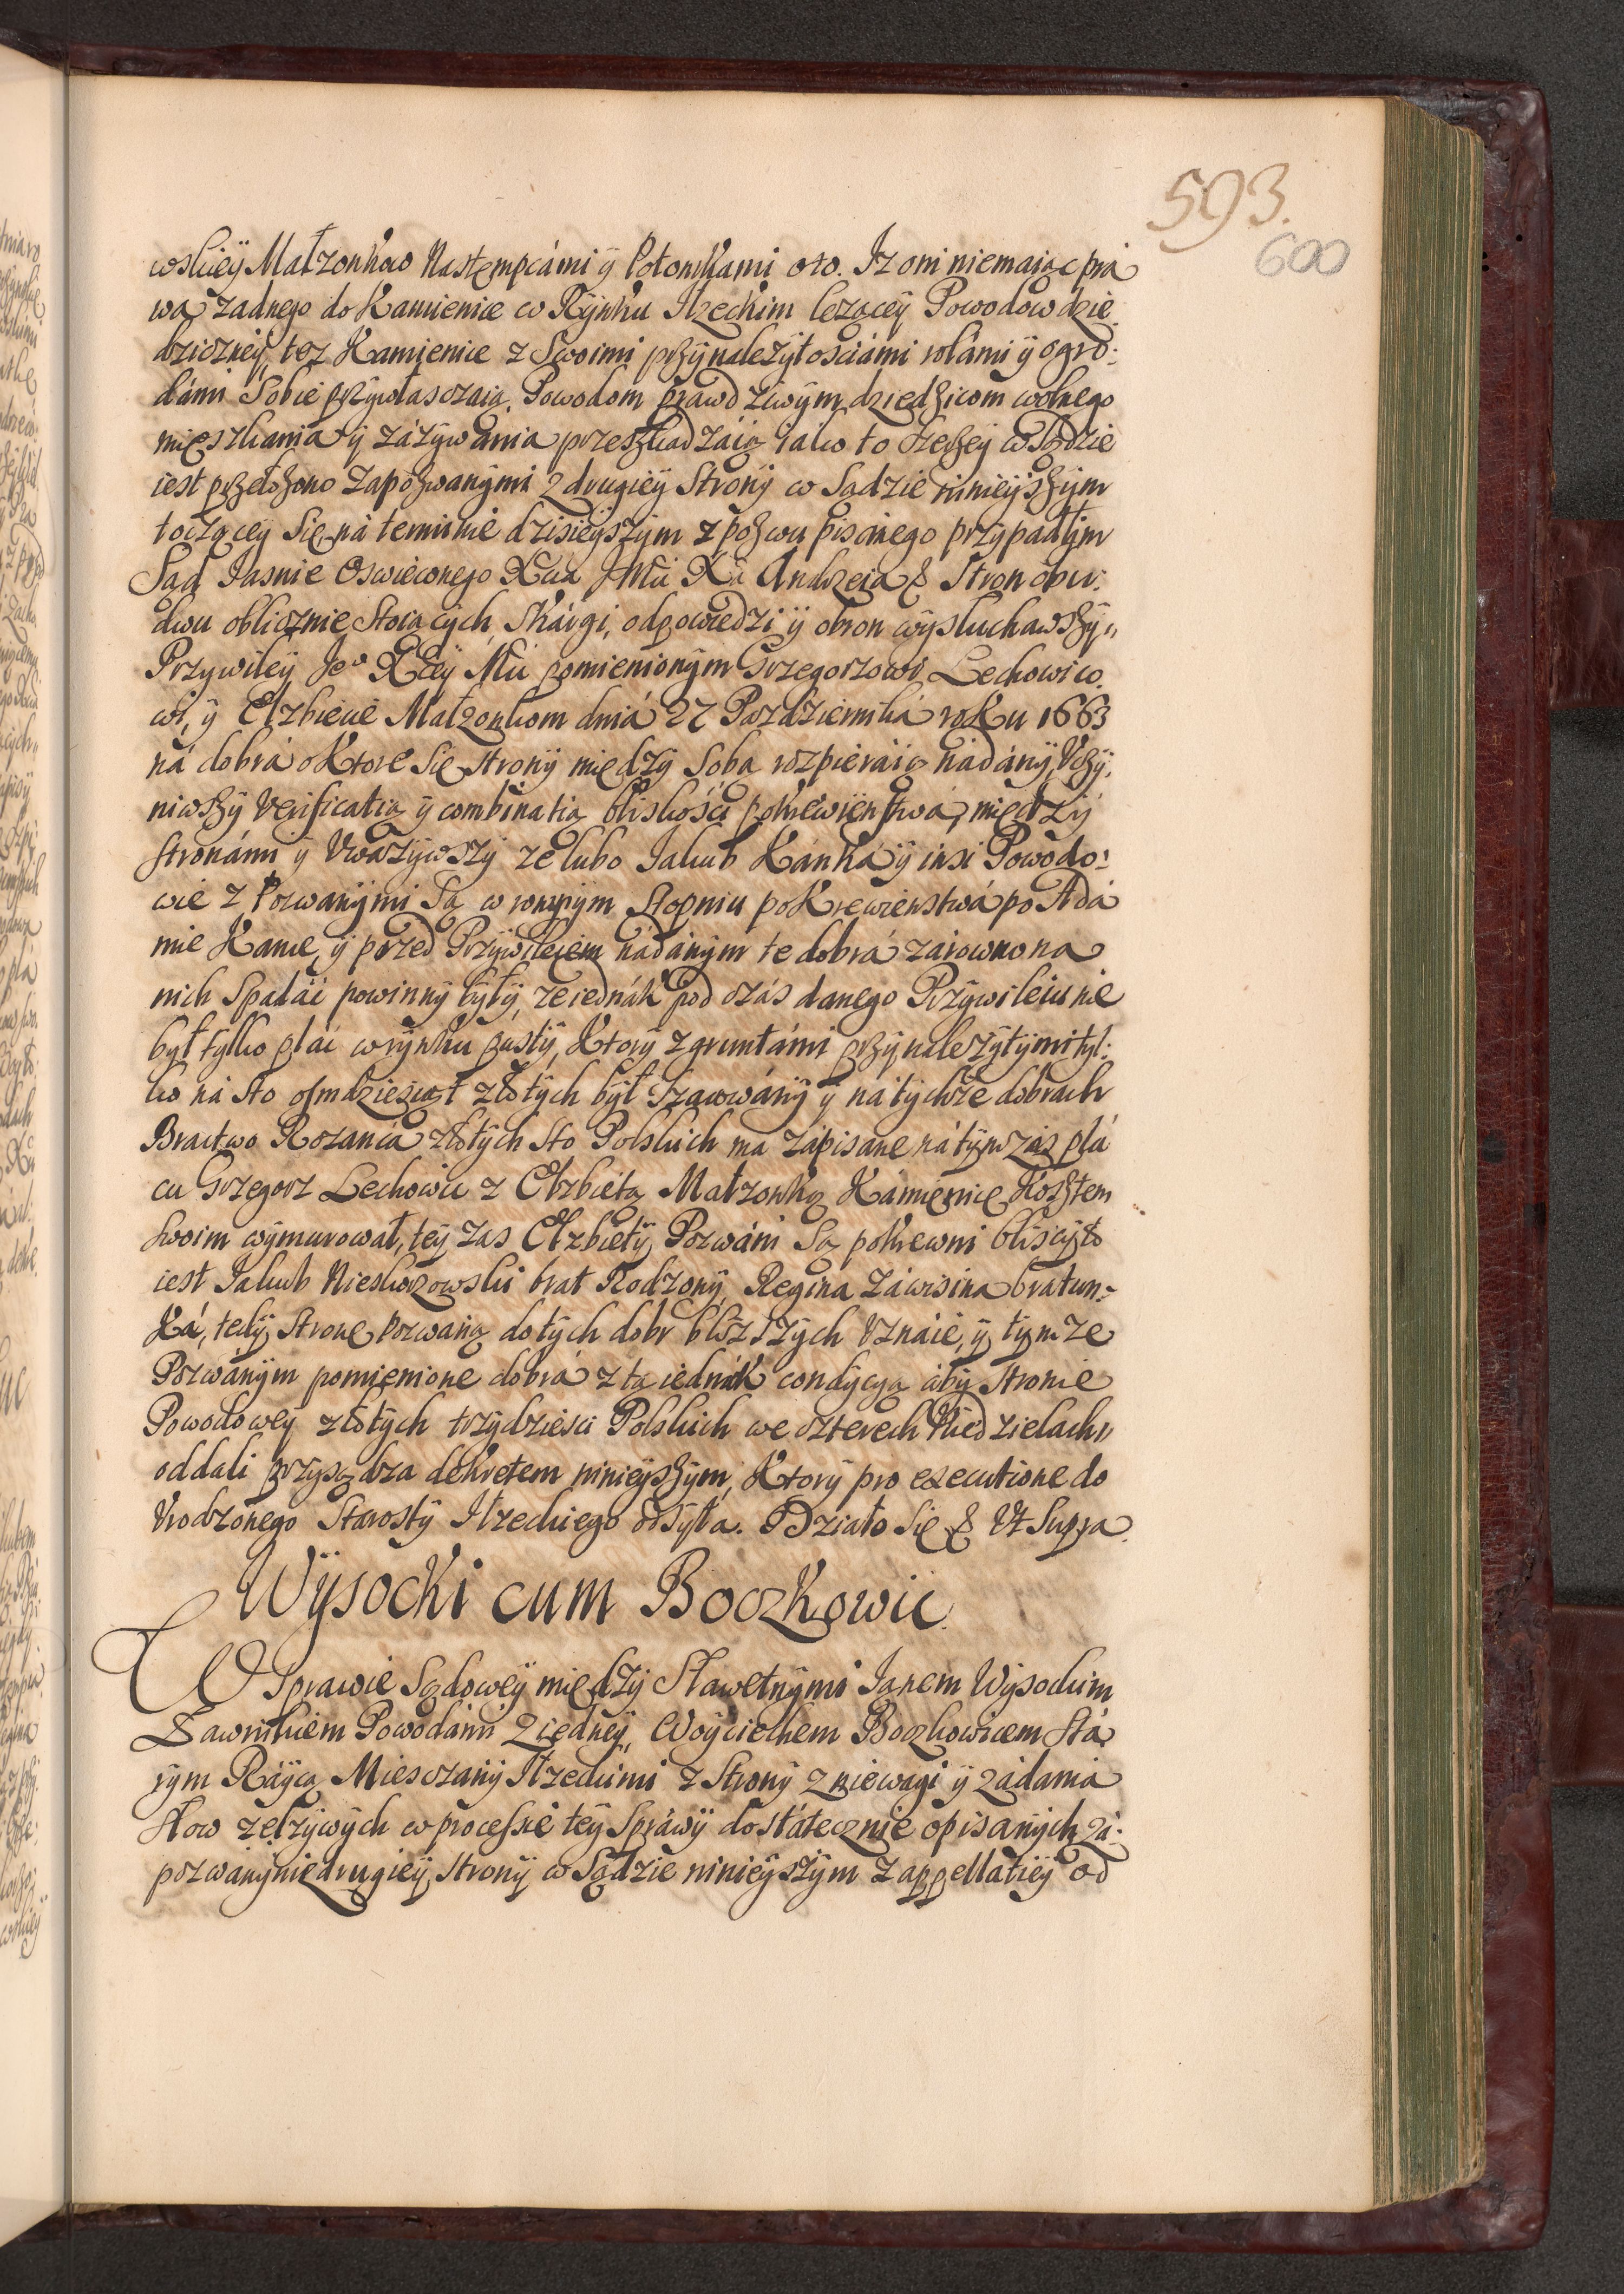 593.
600
wskiey Małzonkow Następcámi y Potomkami oto. Iz oni niemaiąc prá
wa zadnego do Kamienice w Rynku Ilzeckim lezącey Powodow dzie
dziczney, tez Kamienice z Swoimi przynalezytosciámi rolámi y ogro:
dámi Sobie przywłaszczaią, Powodom prawdziwym dziedzicom wolnego
mieszkania y záżywania przeszkadzáią iako to szerzey w Sądzie
iest przełozono Zapozwanymi z drugiey Strony w Sądzie ninieyszym
toczącey Się ná terminie dzisieyszym z pozwu pisánego przypadłym
Sąd Iasnie Oswieconego Xcia JMci Xa Andrzeia & Stron obu:
dwu oblicznie Stoiących Skárgi, odpowiedzi y obron wysłuchawszy,,
Przywiley Jeo Xcey Mci pomienionym Grzegorzowi Lechowico
wi, y Elzbiecie Małzonkom dniá 27 Pazdziernika roku 1663
ná dobrá o Ktore Się Strony między Sobą rozpieraią nádány, Vczy,
niwszy Verificatią y combinatią bliskości pokrewienstwá, między
Stronámi y Vwazywszy ze lubo Iakub Kánká y insi Powodo:
wie z Pozwanymi Są w rownym Stopniu pokrewienstwá po Adá
mie Kance, y przed Przywileiem nádánym te dobrá zárowno na
nich Spadáć powinny były, ze iednák pod czás danego Przywileiu nie
był tylko plác w rynku pusty, Ktory z gruntámi przynalezytymi tyl:
ko ná sto osmdziesiąt złotych był szacowány y ná tychże dobrach
Bractwo Rozanca złotych sto Polskich ma zápisane ná tym zás plá
cu Grzegorz Lechowic z Elzbietą Małzonką Kámienicę Kosztem
swoim wymurował, tey zas Elzbiety Pozwáni Są pokrewni bliscy to
iest Iakub Nieskorzowski brat Rodzony, Regina Záwisina bratun:
ká, tedy Stronę Pozwaną do tych dobr blizszych Vznáie, y tymze
Pozwánym pomienione dobrá z tą iednák condycyą áby Stronie
Powodowey złotych trzydziesci Polskich we czterech Niedzielach,,
oddali przysądza dekretem ninieyszym, Ktory pro executione do
Vrodzonego Starosty Ilzeckiego odsyła. Działo Się & Vt Supra.
Wysocki cum Boczkowic
W Sprawie Sądowey między Sławetnymi Ianem Wysockim
Ławnikiem Powodámi z iedney, Woyciechem Boczkowicem Stá
rym Ráycą Miesczány Ilzeckimi z Strony zniewagi y zádania
słow zelzywych w processie tey Spráwy dostátecznie opisanych zá:
pozwanym z drugiey Strony w Sądzie ninieyszym z appellatiey od